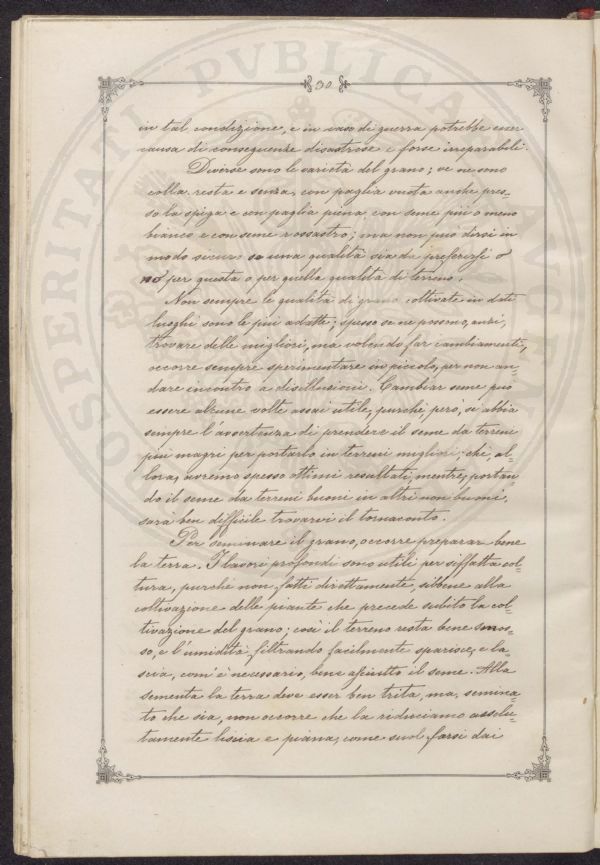 30
in tal condizione, e in caso di guerra potrebbe esser
causa di conseguenze disastrose e forse irreparabili.
Diverse sono le varietà del grano; ve ne sono
colla resta e senza, con paglia vuota anche pres=
so la spiga e con paglia piena, con seme più o meno
bianco e con seme rossastro; ma non può dirsi in
modo sicuro se una qualità sia da preferirsi o
no per questa o per quella qualità di terreno.
Non sempre le qualità di grano coltivate in dati
luoghi sono le più adatte; spesso se ne possono, anzi,
trovare delle migliori, ma volendo far cambiamenti,
occorre sempre sperimentare in piccolo, per non an=
dare incontro a disillusioni. Cambiar seme può
essere alcune volte assai utile, purchè, però, si abbia
sempre l'avvertenza di prendere il seme da terreni
più magri per portarlo in terreni migliori; chè, al=
lora, avremo spesso ottimi resultati, mentre, portan
do il seme da terreni buoni in altri non buoni,
sarà ben difficile trovarvi il tornaconto.
Per seminare il grano, occorre preparar bene
la terra. I lavori profondi sono utili per siffatta col=
tura, purchè non fatti direttamente, sibbene alla
coltivazione delle piante che precede subito la col=
tivazione del grano; così il terreno resta bene smos=
so, e l'umidità, filtrando facilmente sparisce, e la=
scia, com'è necessario, bene asciutto il seme. Alla
sementa la terra deve esser ben trita, ma, semina=
to che sia, non occorre che la riduciamo assolu=
tamente liscia e piana, come suol farsi dai
PROSPERITATI PVBLICAE AVGEN